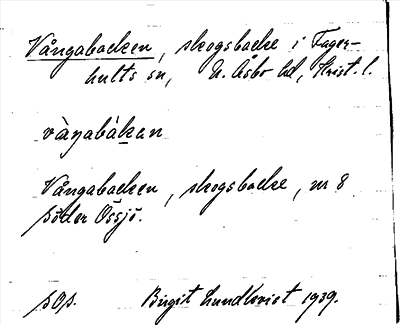 Vångabacken, skogsbacke i Fager-
hults sn, N. Åsbo hd, Krist. l.
vàŋabàkan
Vångabacken, skogsbacke, m 8
söder Össjö.
sOp. Birgit Lundkvist 1939.